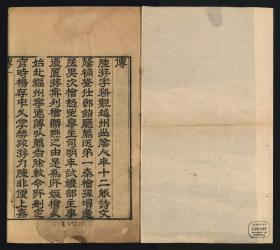 傳
陸游字務觀越州山陰人年十二能詩文
蔭補登仕郎鎖廳薦送第一秦檜孫塤適
居其次檜怒至罪主司明年試禮部主司
復置游前列檜顯黜之由是為所嫉檜死
始赴福州寧德簿以薦者除敕令所刪定
官時楊存中久掌禁旅游力陳非便上嘉
LIBRARY